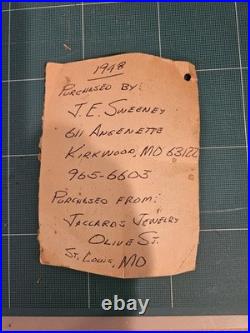 1948
PURCHASED BY:
J. E. SWEENEY
611 ANGENETTE
KIRKWOOD, MO 63122
965-6603
PURCHASED FROM:
JACCARD'S JEWELRY
OLIVE ST.
ST. LOUIS, MO